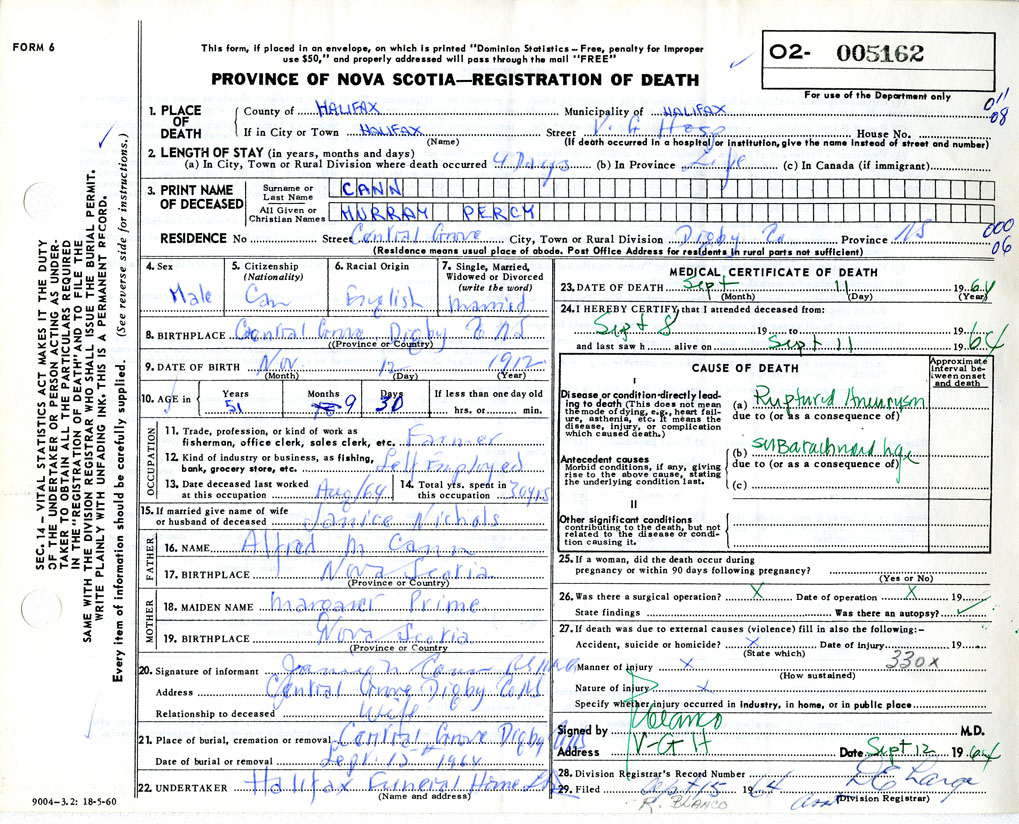 FORM 6
This form, if placed in an envelope, on which is printed "Dominion Statistics – Free, penalty for improper
use $50," and properly addressed will pass through the mail "FREE"
PROVINCE OF NOVA SCOTIA—REGISTRATION OF DEATH
02- 005162
For use of the Department only
011
08
SEC. 14 – VITAL STATISTICS ACT MAKES IT THE DUTY
OF THE UNDERTAKER OR PERSON ACTING AS UNDER-
TAKER TO OBTAIN ALL THE PARTICULARS REQUIRED
IN THE "REGISTRATION OF DEATH" AND TO FILE THE
SAME WITH THE DIVISION REGISTRAR WHO SHALL ISSUE THE BURIAL PERMIT.
WRITE PLAINLY WITH UNFADING INK. THIS IS A PERMANENT RECORD.
Every item of information should be carefully supplied. (See reverse side for instructions.)
1. PLACE OF DEATH
County of HALIFAX Municipality of HALIFAX
If in City or Town HALIFAX Street V. G Hosp House No.
(Name) (If death occurred in a hospital or institution, give the name instead of street and number)
2. LENGTH OF STAY (in years, months and days)
(a) In City, Town or Rural Division where death occurred 4 Days (b) In Province Life (c) In Canada (if immigrant)
3. PRINT NAME OF DECEASED
Surname or Last Name CANN
All Given or Christian Names MURRAY PERCY
000
06
RESIDENCE No Street Central Grove City, Town or Rural Division Digby Co Province NS
(Residence means usual place of abode. Post Office Address for residents in rural parts not sufficient)
4. Sex Male
5. Citizenship (Nationality) Can
6. Racial Origin English
7. Single, Married, Widowed or Divorced (write the word) Married
8. BIRTHPLACE Central Grove Digby Co NS
(Province or Country)
9. DATE OF BIRTH Nov 12 1912
(Month) (Day) (Year)
10. AGE in Years 51 Months 9 Days 30 If less than one day old hrs. or min.
OCCUPATION
11. Trade, profession, or kind of work as
fisherman, office clerk, sales clerk, etc. Farmer
12. Kind of industry or business, as fishing,
bank, grocery store, etc. Self Employed
13. Date deceased last worked at this occupation Aug/64
14. Total yrs. spent in this occupation 30 yrs
15. If married give name of wife
or husband of deceased Janice Nichols
FATHER
16. NAME Alfred M Cann
17. BIRTHPLACE Nova Scotia
(Province or Country)
MOTHER
18. MAIDEN NAME Margaret Prime
19. BIRTHPLACE Nova Scotia
(Province or Country)
20. Signature of informant Cann
Address Central Grove Digby Co NS
Relationship to deceased Wife
21. Place of burial, cremation or removal Central Grove Digby Co NS
Date of burial or removal Sept. 15 1964
22. UNDERTAKER Halifax Funeral Home Ltd
(Name and address)
9004-3.2: 18-5-60
MEDICAL CERTIFICATE OF DEATH
23. DATE OF DEATH Sept 11 1964
(Month) (Day) (Year)
24. I HEREBY CERTIFY that I attended deceased from:
Sept 8 19 to 19
and last saw h alive on Sept 11 1964
CAUSE OF DEATH
Approximate interval be-tween onset and death
I
Disease or condition directly lead-
ing to death (This does not mean
the mode of dying, e.g., heart fail-
ure, asthenia, etc. It means the
disease, injury, or complication
which caused death.)
(a) Ruptured Aneurysm
due to (or as a consequence of)
Antecedent causes
Morbid conditions, if any, giving
rise to the above cause, stating
the underlying condition last.
(b) Subarachnoid hge
due to (or as a consequence of)
(c)
II
Other significant conditions
contributing to the death, but not
related to the disease or condi-
tion causing it.
25. If a woman, did the death occur during
pregnancy or within 90 days following pregnancy?
(Yes or No)
26. Was there a surgical operation? X Date of operation X 19
State findings Was there an autopsy? ✓
27. If death was due to external causes (violence) fill in also the following:–
Accident, suicide or homicide? X Date of injury 19
(State which)
330X
Manner of injury X
(How sustained)
Nature of injury X
Specify whether injury occurred in industry, in home, or in public place
Signed by RBlanco M.D.
Address V-G H Date Sept 12 1964
28. Division Registrar's Record Number
29. Filed Sept 15 1964 D E Large
R. BLANCO (Division Registrar)